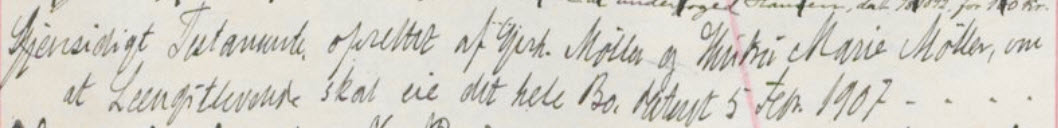 undertegnet Hansen, dat.
Gjensidigt Testamente, oprettet af Gerh. Möller og Hustru Marie Möller, om
at Længstlevende skal eie det hele Bo. Dateret 5 Febr. 1907 - - - -